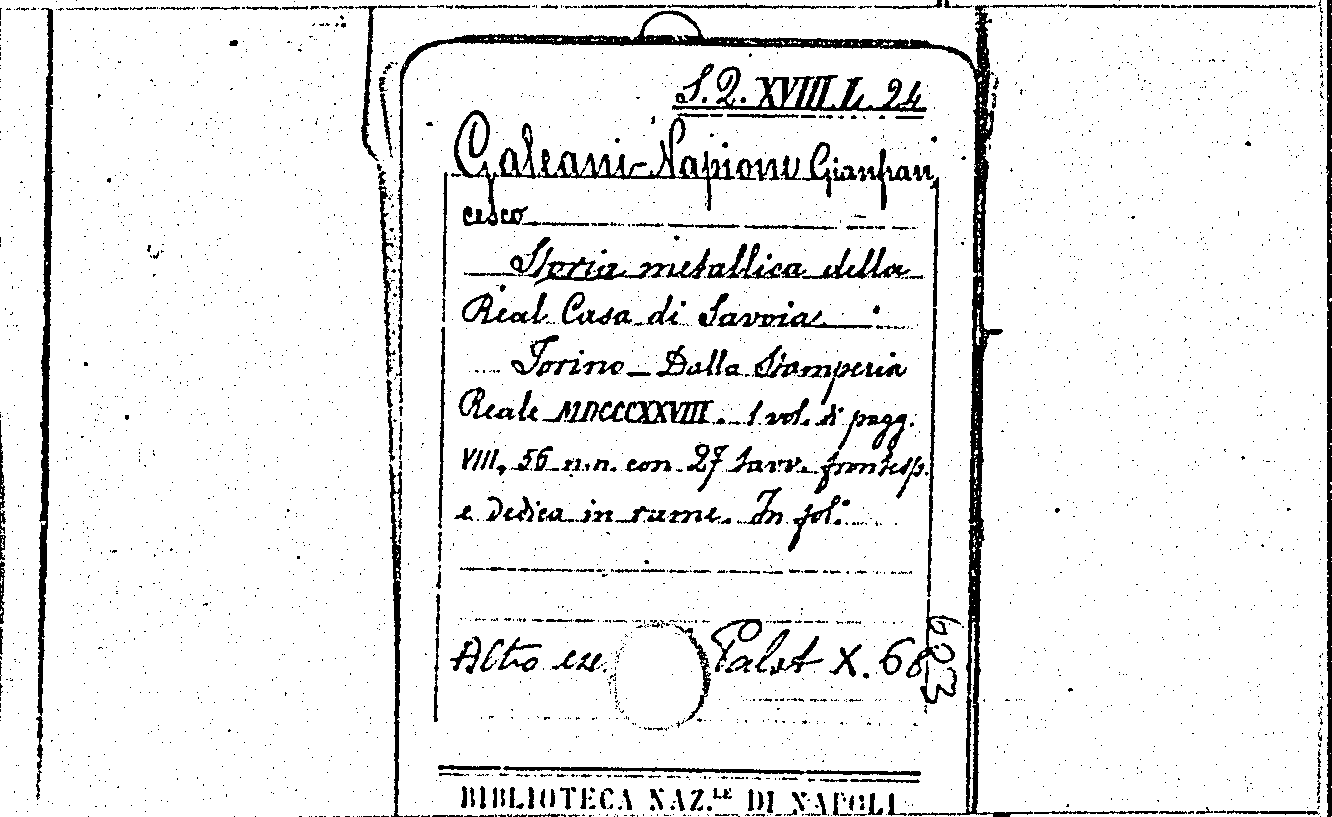 S. Q. XVIII. L. 24
Galeani-Napione Gianfran,
cesco
Storia metallica della
Real Casa di Savoia
Torino - Dalla Stamperia
Reale MDCCCXXVIII. 1 vol. di pagg.
VIII, 56 n.n. con 27 tavv. frontesp.
e dedica in rame. In fol.
Altro ese Palat X. 68
623
BIBLIOTECA NAZ.LE DI NAPOLI